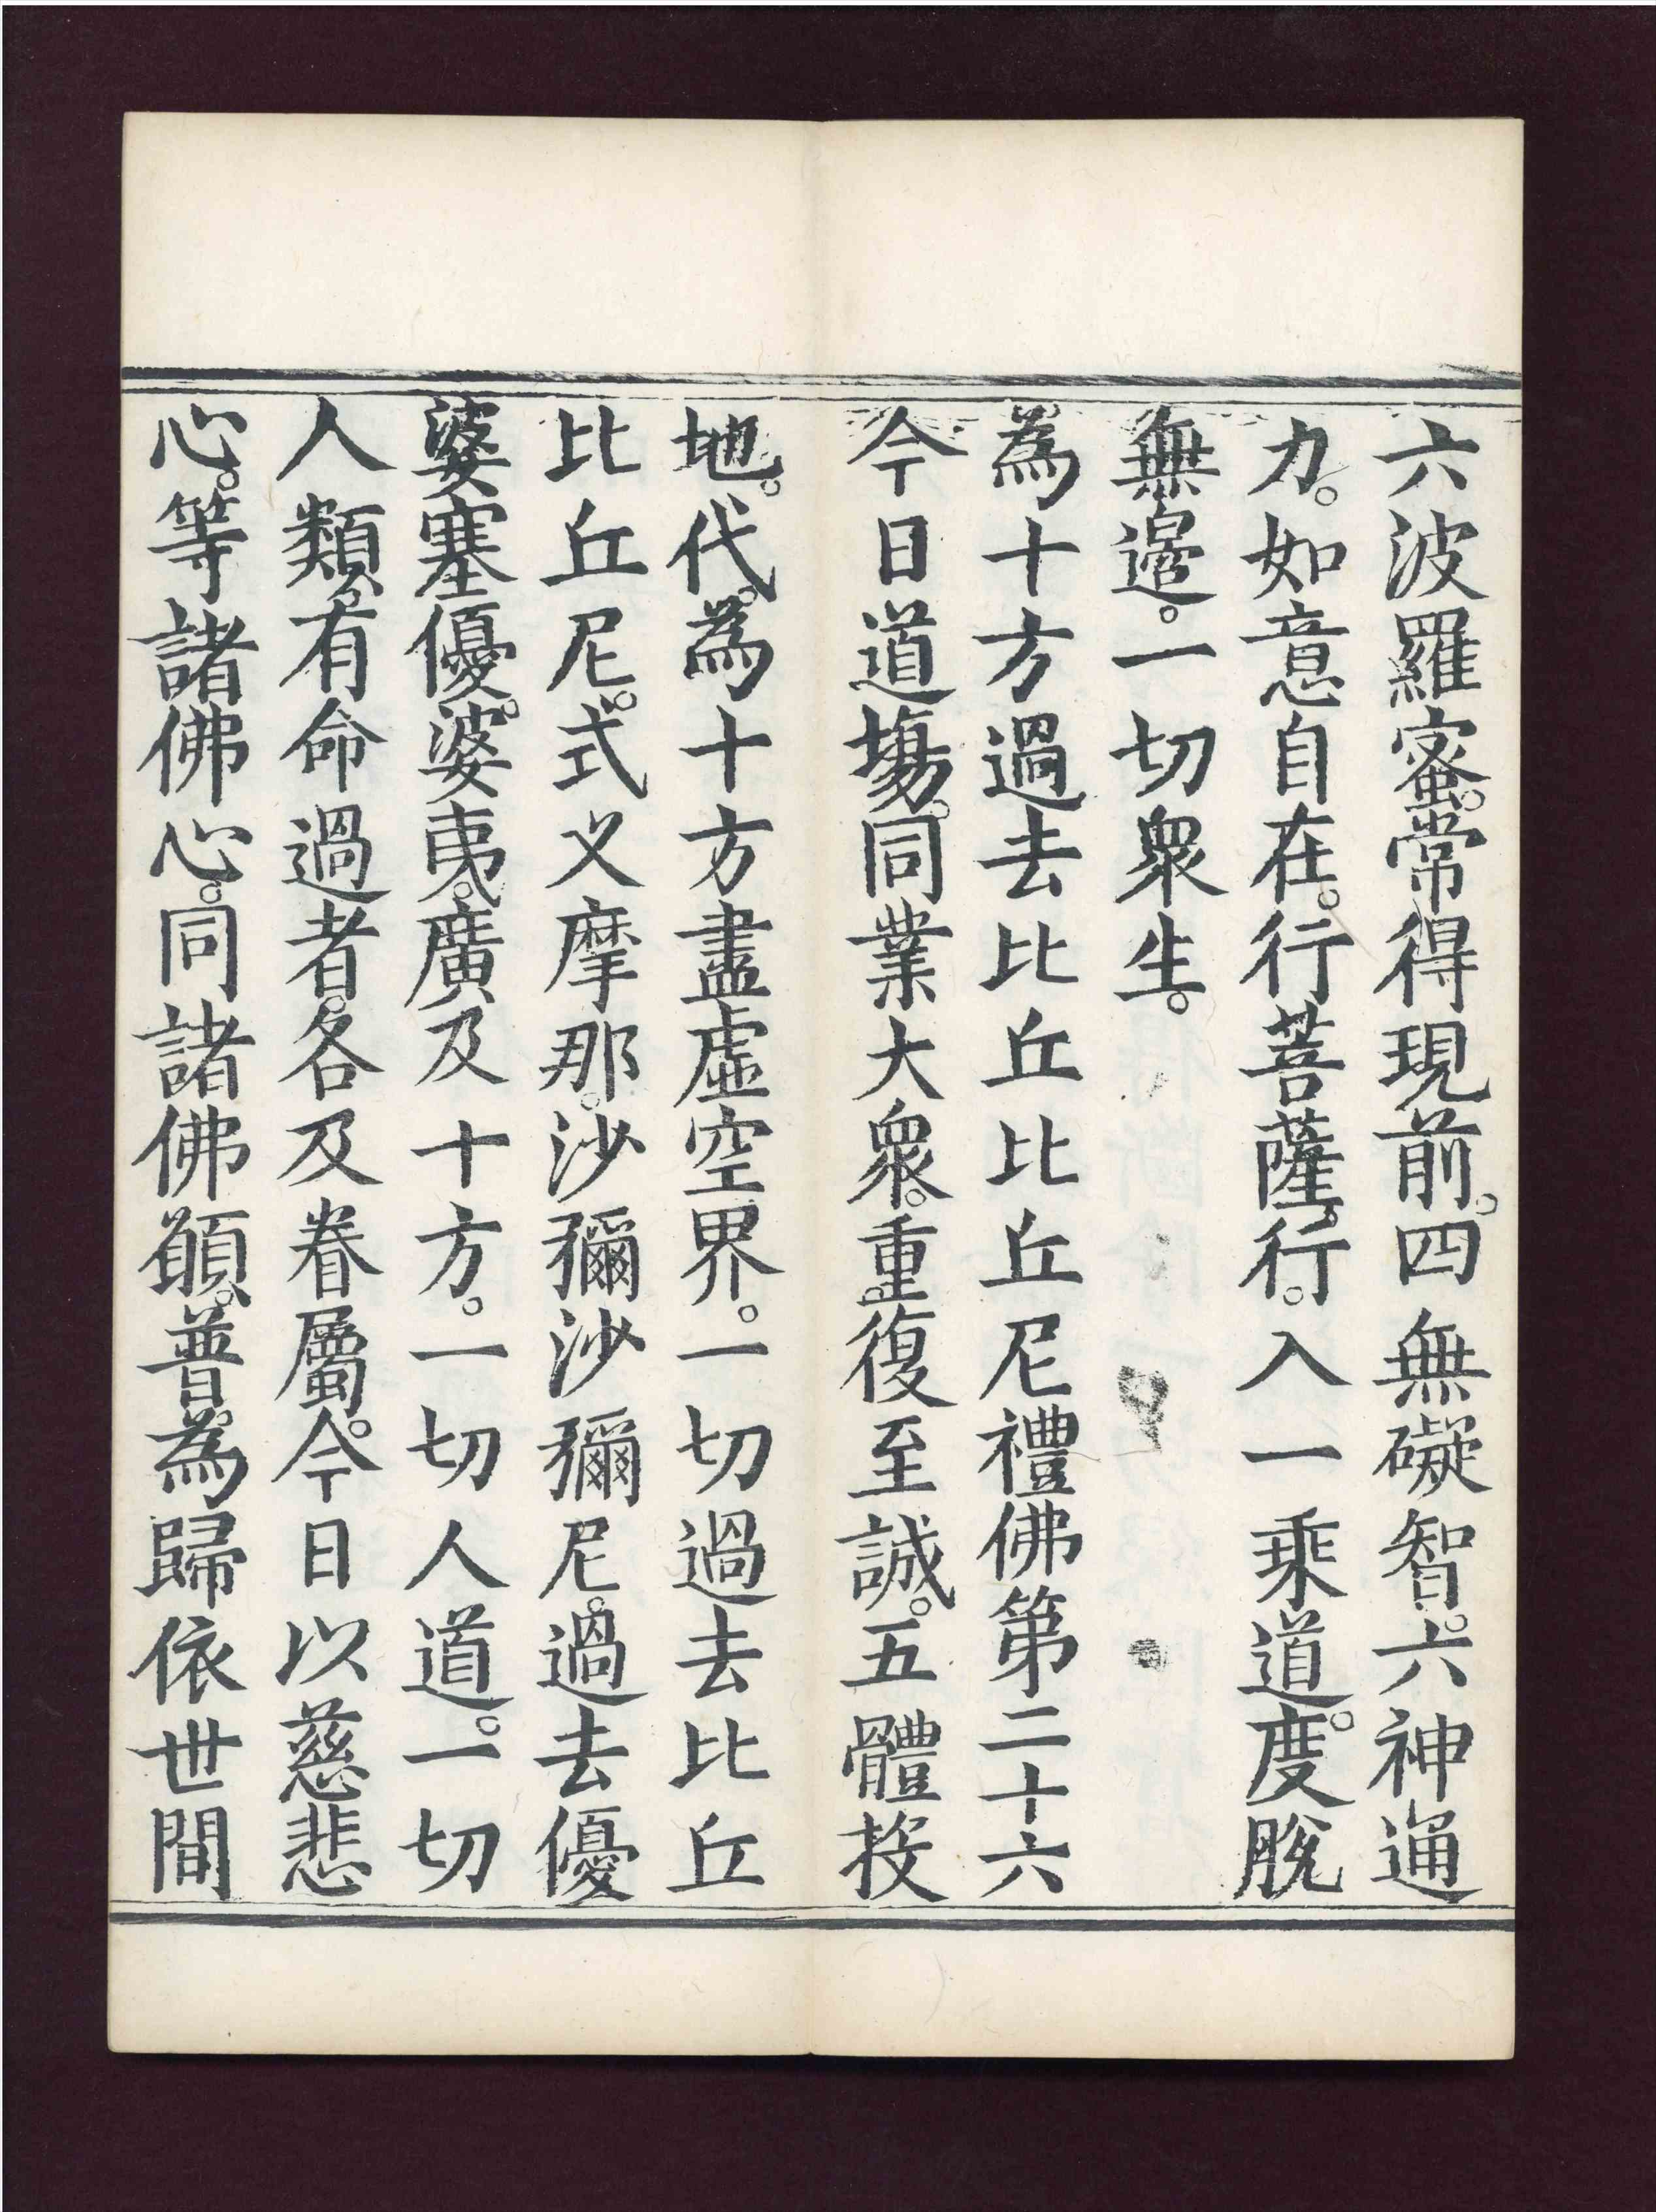 六波羅蜜。常得現前。四無礙智。六神通
力。如意自在。行菩薩行。入一乘道。度脫
無邊。一切眾生。
為十方過去比丘比丘尼禮佛第二十六
今日道場。同業大眾。重復至誠。五體投
地。代。為十方盡虛空界。一切過去比丘
比丘尼。式叉摩那。沙彌沙彌尼。過去優
婆塞優。婆夷。廣及十方。一切人道。一切
人類。有命過者。各及眷屬。今日以慈悲
心。等諸佛心。同諸佛願。普為歸依世間